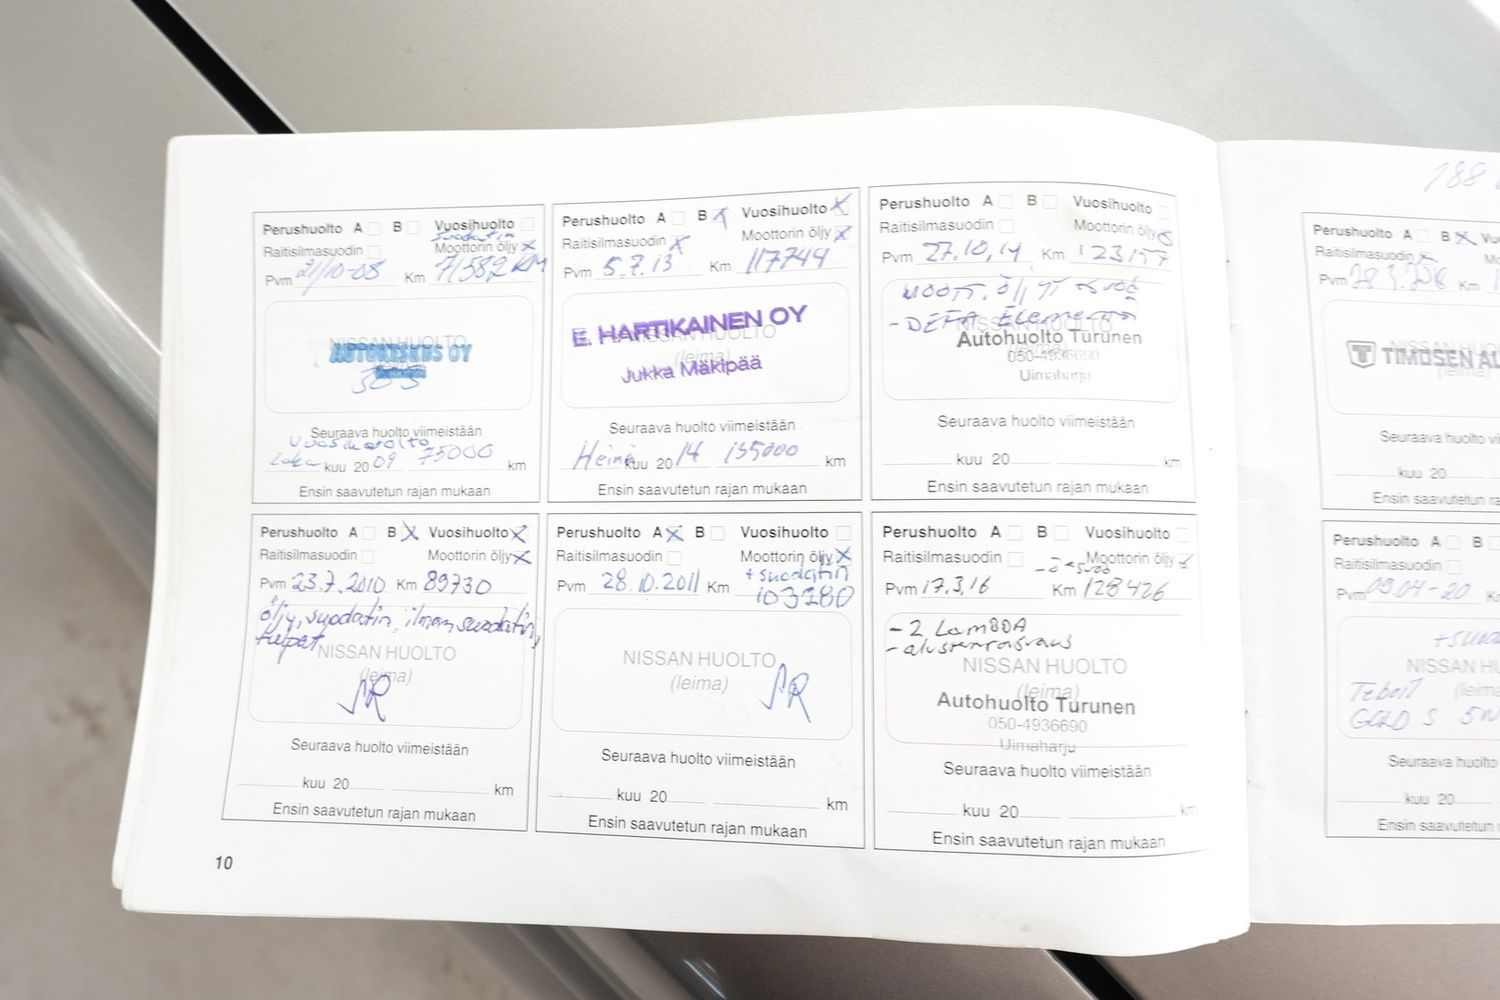 Perushuolto A B Vuosihuolto
suodatin
Raitisilmasuodin Moottorin öljy x
Pvm 21/10-08 Km 71582 KM
NISSAN HUOLTO
AUTOKESKUS OY
305
Seuraava huolto viimeistään
Vuosihuolto
Loka kuu 2009 75000 km
Ensin saavutetun rajan mukaan
Perushuolto A B x Vuosihuolto x
Raitisilmasuodin x Moottorin öljy x
Pvm 5.7.13 Km 117744
E. HARTIKAINEN OY
NISSAN HUOLTO
(leima)
Jukka Mäkipää
Seuraava huolto viimeistään
Heinä kuu 2014 135000 km
Ensin saavutetun rajan mukaan
Perushuolto A B Vuosihuolto
Raitisilmasuodin Moottorin öljy
Pvm 27.10.14 Km 123157
MOOTT. öljyt
- DEFA Elementti
NISSAN HUOLTO
Autohuolto Turunen
050-4936690
Uimaharju
Seuraava huolto viimeistään
kuu 20 km
Ensin saavutetun rajan mukaan
Perushuolto A B x Vuosihuolto x
Raitisilmasuodin Moottorin öljy x
Pvm 23.7.2010 Km 89730
öljy, suodatin, ilmansuodatin,
tulpat
NISSAN HUOLTO
(leima)
JR
Seuraava huolto viimeistään
kuu 20 km
Ensin saavutetun rajan mukaan
Perushuolto A x B Vuosihuolto
Raitisilmasuodin Moottorin öljy x
+ suodatin
Pvm 28.10.2011 Km 103280
NISSAN HUOLTO
(leima)
JR
Seuraava huolto viimeistään
kuu 20 km
Ensin saavutetun rajan mukaan
Perushuolto A B Vuosihuolto
Raitisilmasuodin Moottorin öljy x
Pvm 17.3.16 Km 128426
- 2 LamBDA
NISSAN HUOLTO
(leima)
Autohuolto Turunen
050-4936690
Uimaharju
Seuraava huolto viimeistään
kuu 20 km
Ensin saavutetun rajan mukaan
10
188
Perushuolto A B x
Raitisilmasuodin x
Pvm Km
NISSAN
TIMOSEN
(leima)
Seuraava huolto
kuu 20
Ensin saavutetun
Perushuolto A B
Raitisilmasuodin
Pvm 09.04-20
NISSAN
(leima)
Teboil
GOLD S 5W
Seuraava huolto
kuu 20
Ensin saavutetun